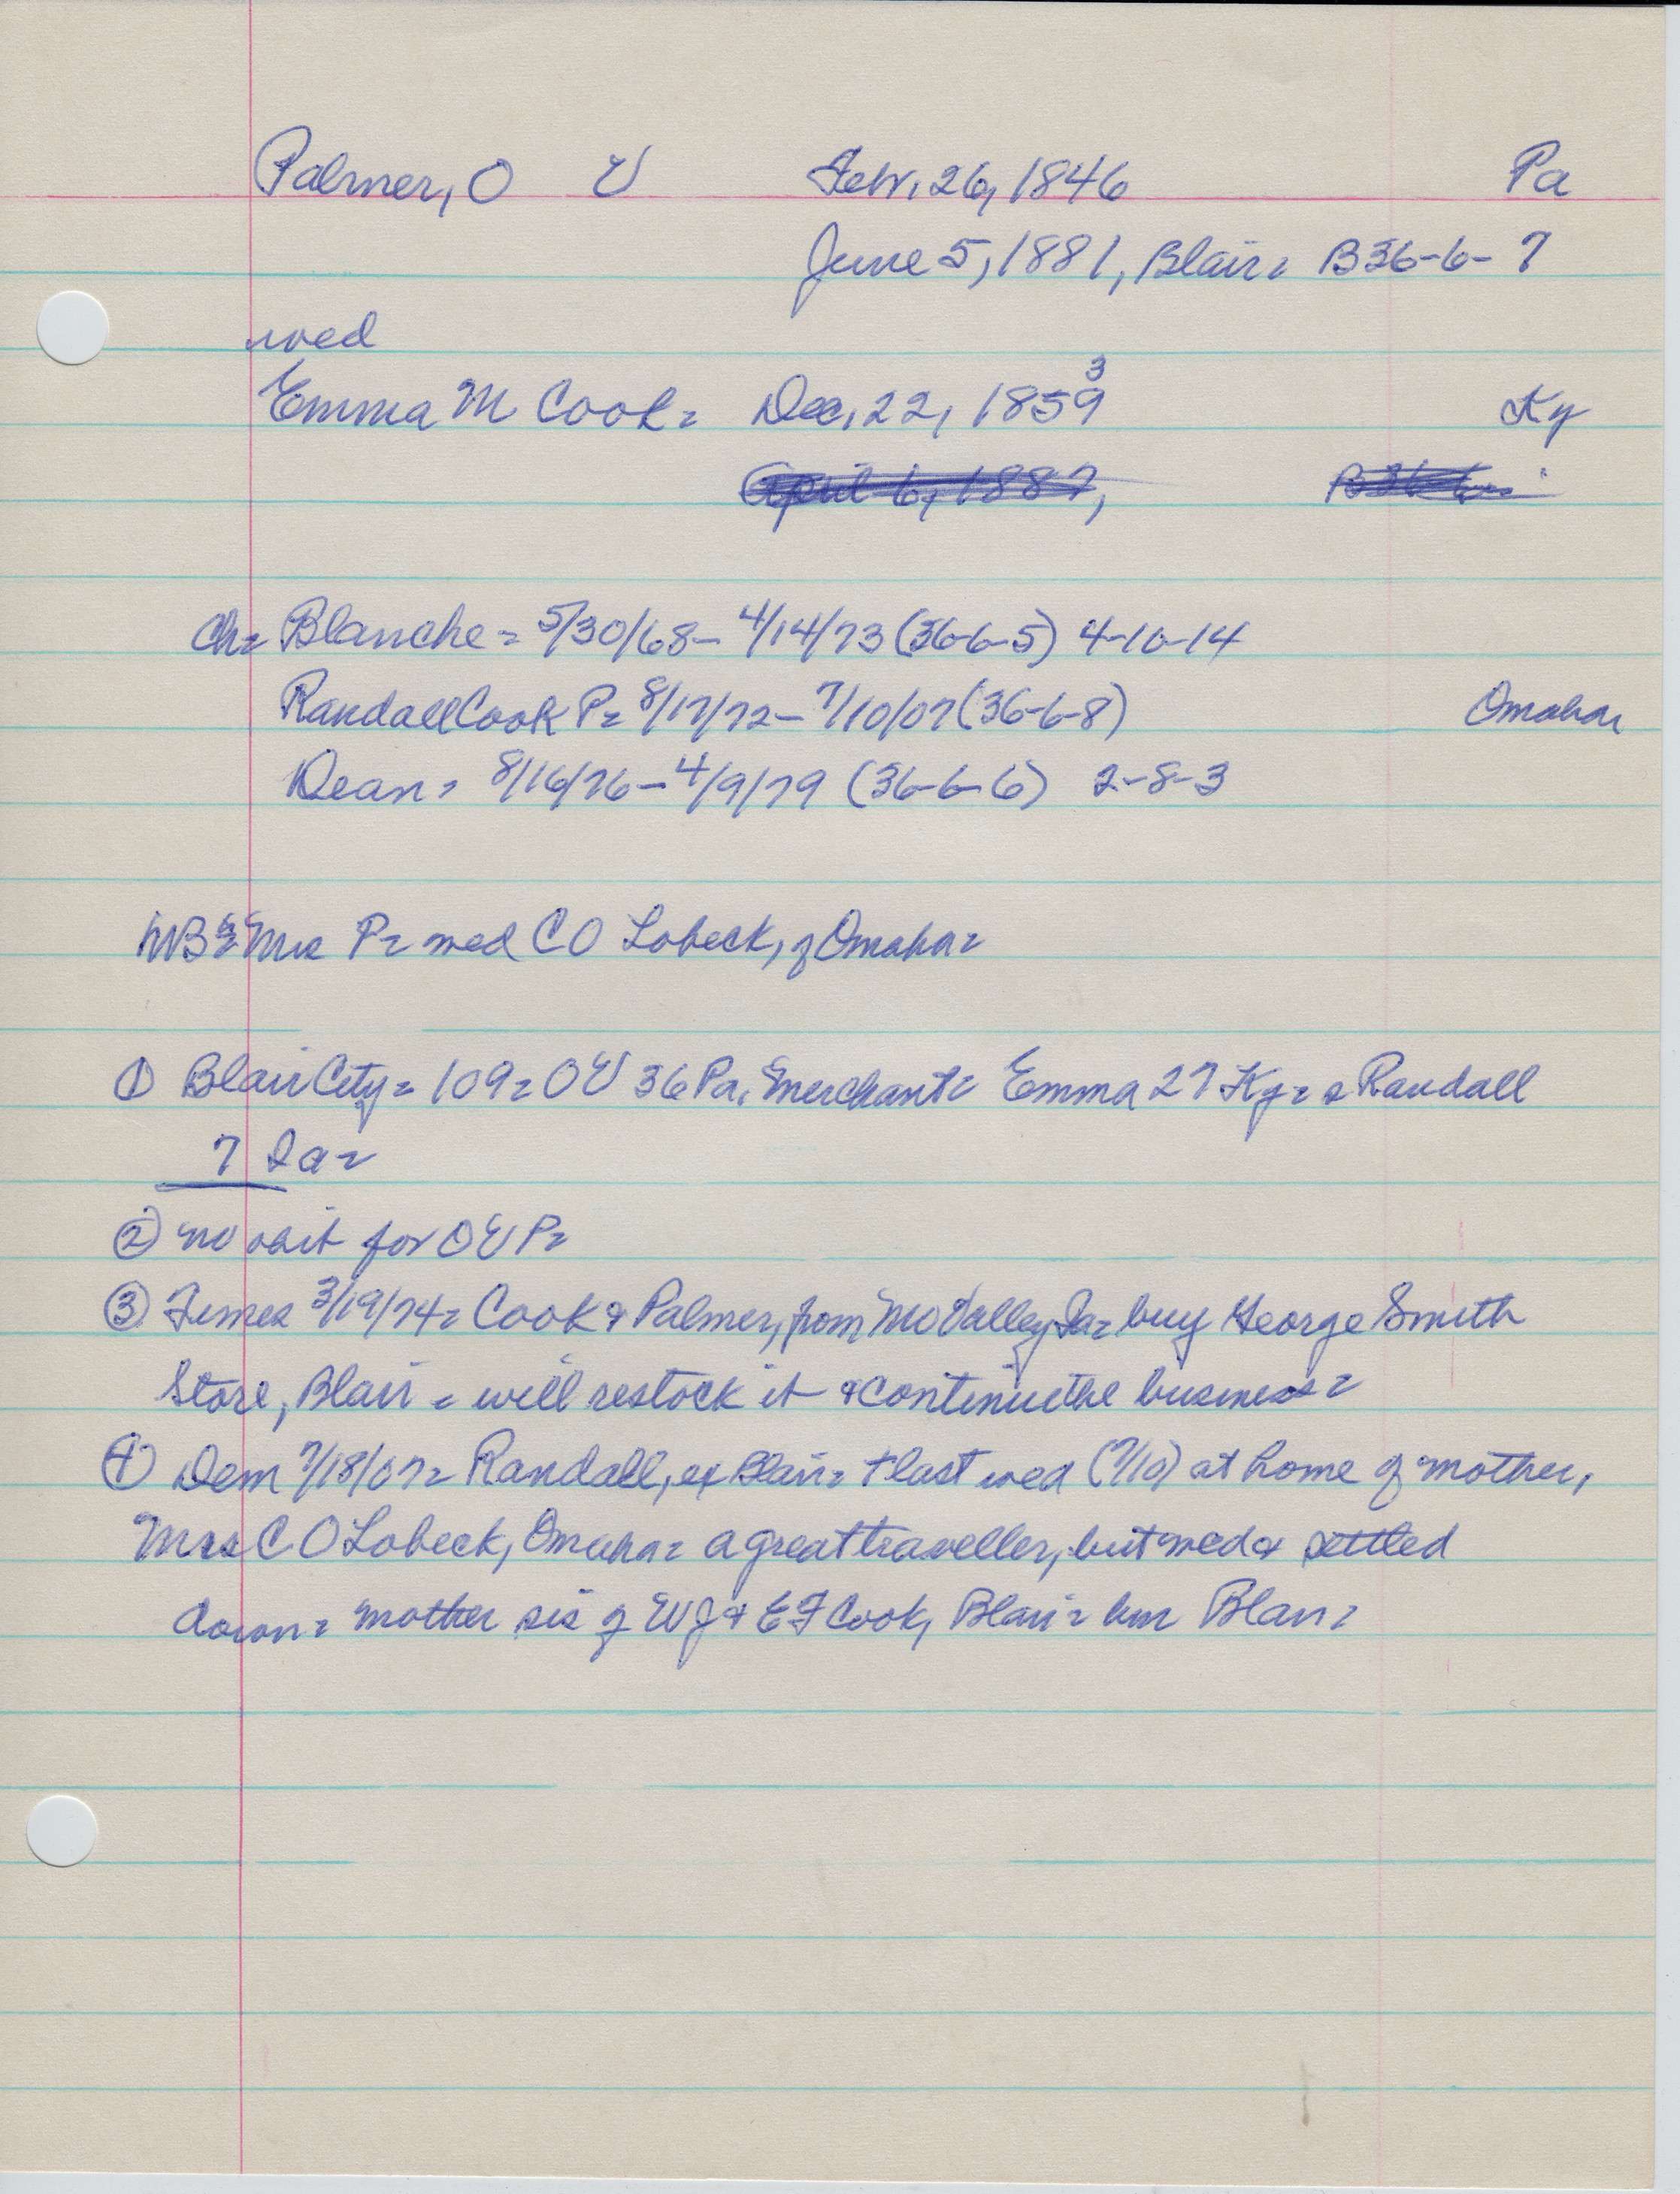 Palmer, O V Febr. 26, 1846 Pa
June 5, 1881, Blair= B36-6-7
wed
Emma M Cook= Dec. 22, 1859 3 Ky
April 6, 1887,
Ch= Blanche= 5/30/68- 4/14/73 (36-6-5) 4-10-14
Randall Cook P= 8/17/72- 7/10/07 (36-6-8) Omaha
Dean= 8/16/76- 4/9/79 (36-6-6) 2-8-3
NB= Mrs P= wed C O Lobeck, of Omaha=
① Blair City= 109= O V 36 Pa. merchant= Emma 27 Ky= s Randall
7 Ia=
② no obit for O V P=
③ Times 3/19/74= Cook & Palmer, from Mo Valley Ia= buy George Smith
Store, Blair= will restock it & continue the business=
④ Dem 7/18/07= Randall, ex Blair= + last wed (7/10) at home of mother,
Mrs C O Lobeck, Omaha= a great traveller, but wed & settled
down= mother sis of W J & E F Cook, Blair= bur Blair=